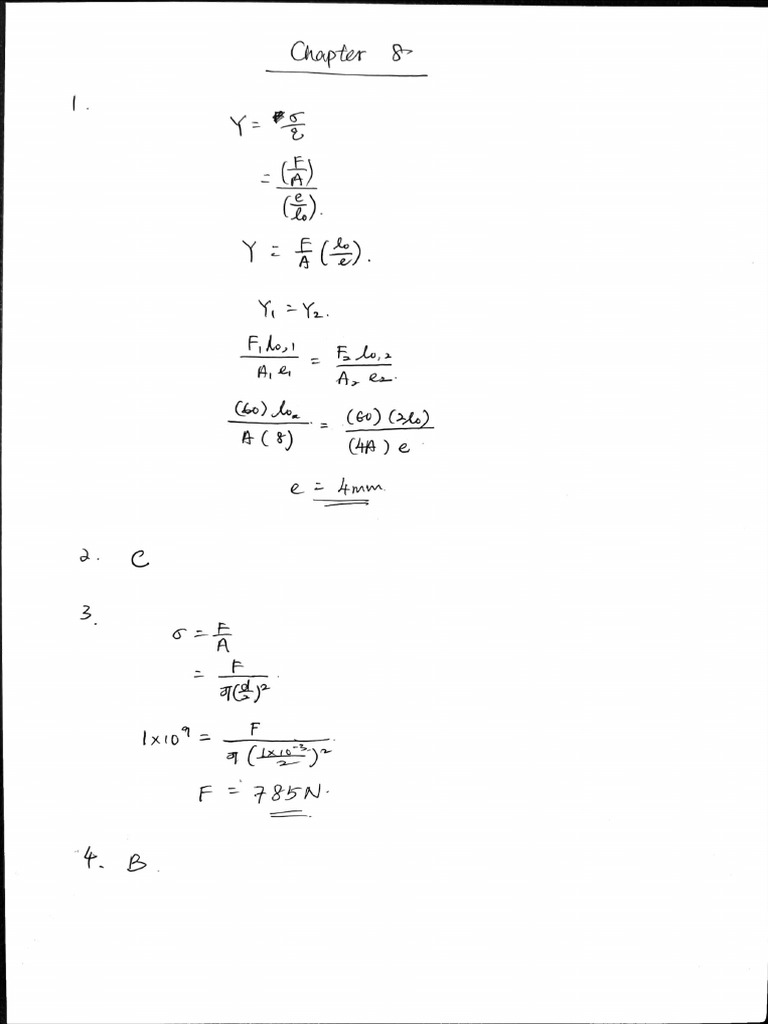 Chapter 8
1.
Y = σ/ε
= (F/A)/(e/l₀).
Y = F/A (l₀/e).
Y₁ = Y₂.
F₁ l₀,₁ / A₁ e₁ = F₂ l₀,₂ / A₂ e₂.
(60) l₀ / A (8) = (60) (2l₀) / (4A) e
e = 4mm
2. C
3.
σ = F/A
= F / π(d/2)².
1×10⁹ = F / π (1×10⁻³/2)²
F = 785N.
4. B.